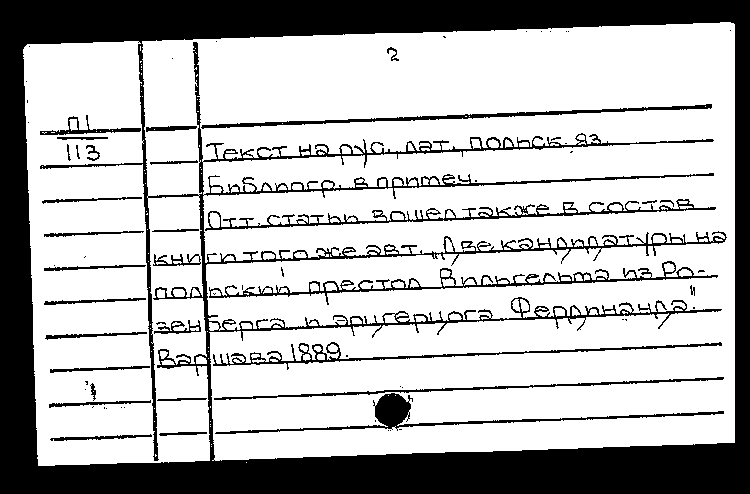 2
П1
113
Текст на рус., лат., польск. яз.
Библиогр. в примеч.
Отт. статьи вошел также в состав
книги того же авт. „Две кандидатуры на
польский престол Вильгельма из Ро-
зенберга и эрцгерцога Фердинанда".
Варшава, 1889.